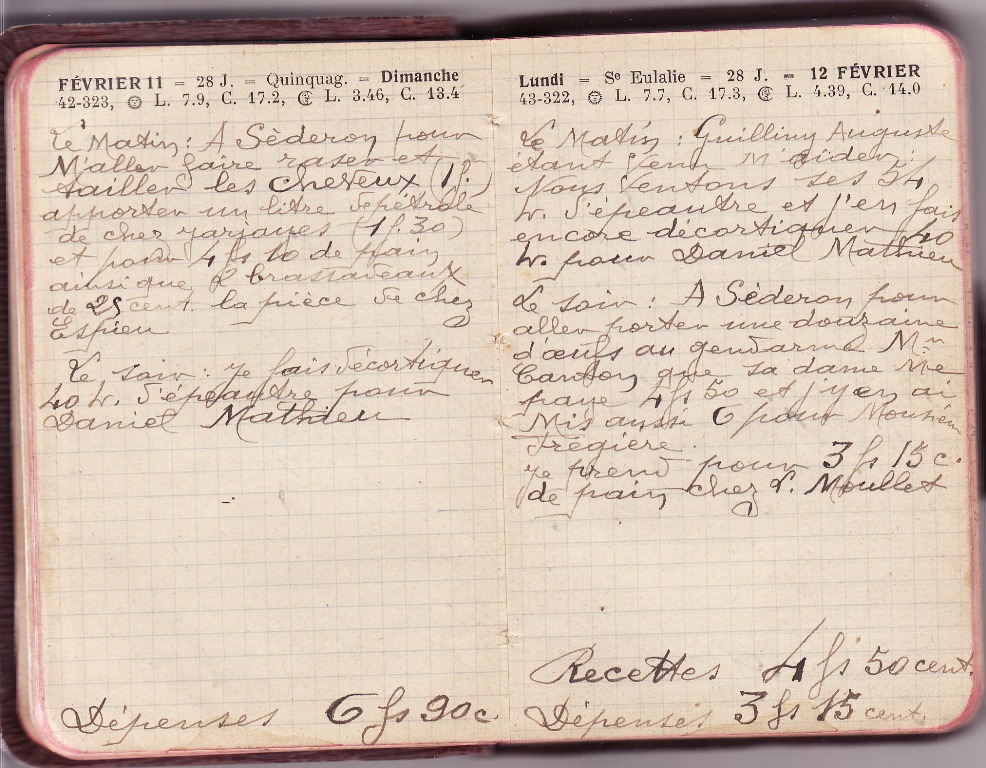 FÉVRIER 11 = 28 J. = Quinquag. = Dimanche
42-323, L. 7.9, C. 17.2, L. 3.46, C. 13.4
Le Matin : A Séderon pour
M'aller faire raser et
tailler les cheveux (1f.)
apporter un litre de pétrole
de chez Jarjayes (1f.30)
et pour 4 fs 10 de pain
ainsi que 2 brassaveaux
de 25 cent. la pièce de chez
Espieu
Le soir : je fais décortiquer
40 k. d'épeautre pour
Daniel Mathieu
Dépenses 6 fs 90 c.
Lundi = Se Eulalie = 28 J. = 12 FÉVRIER
43-322, L. 7.7, C. 17.3, L. 4.39, C. 14.0
Le Matin : Guilliny Auguste
étant venu m'aider :
Nous ventons ses 54
k. d'épeautre et j'en fais
encore décortiquer 40
k. pour Daniel Mathieu
Le soir : A Séderon pour
aller porter une douzaine
d'œufs au gendarme Mr
Canton que sa dame me
paye 4 fs 50 et j'y en ai
Mis aussi 6 pour Monsieur
Frégière.
je prend pour 3 fs 15 c.
de pain chez Moullet
Recettes 4 fs 50 cent.
Dépenses 3 fs 15 cent.